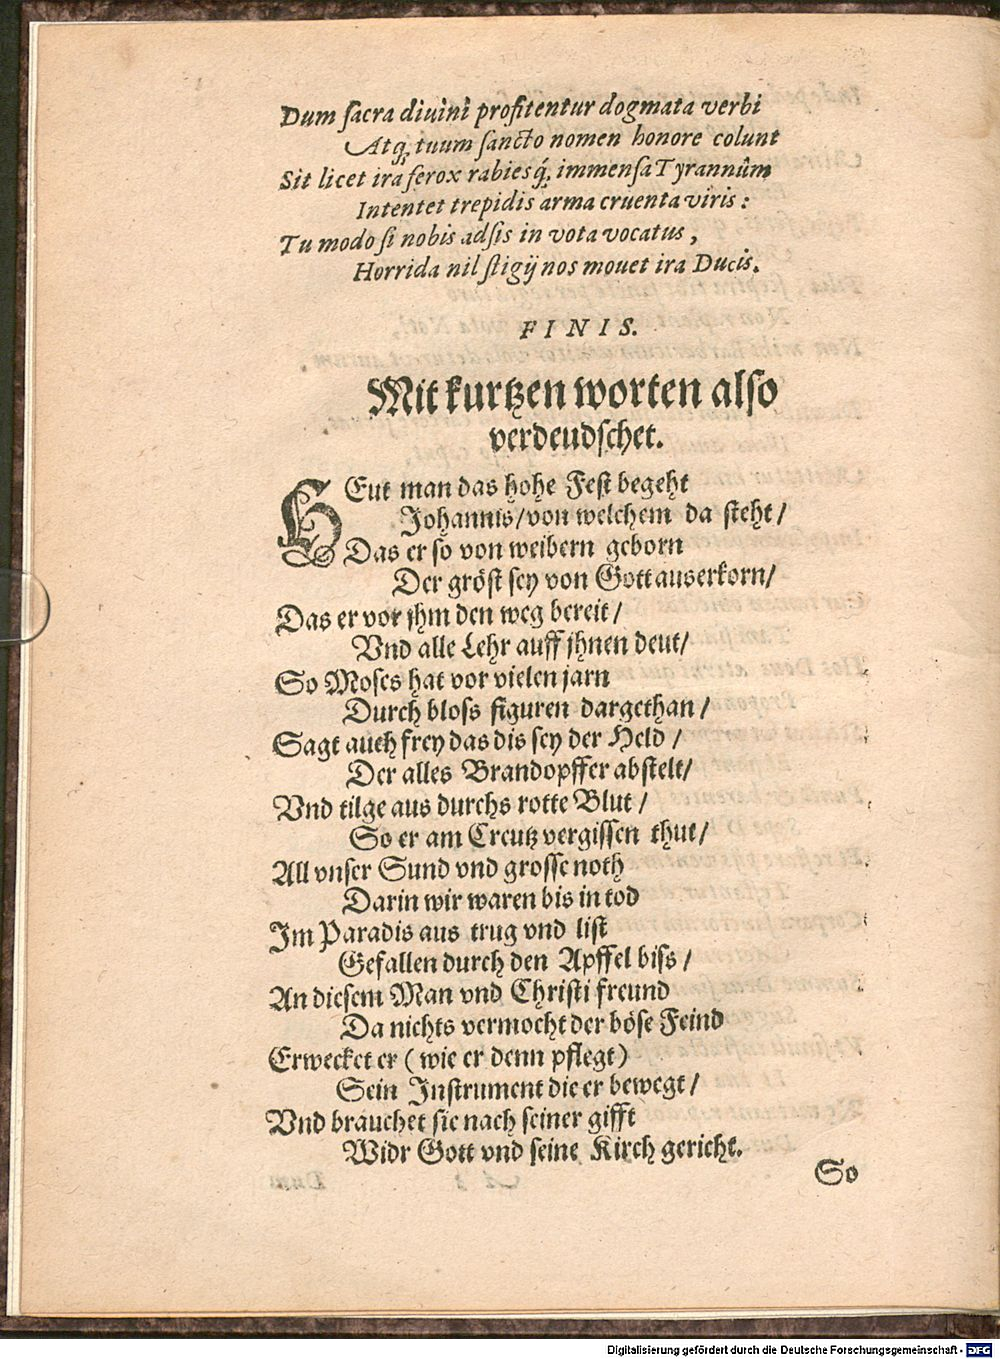 Dum ſacra diuinì profitentur dogmata verbi
Atq́; tuum ſancto nomen honore colunt
Sit licet ira ferox rabiesq́; immenſa Tyrannûm
Intentet trepidis arma cruenta viris:
Tu modo ſi nobis adſis in vota vocatus,
Horrida nil ſtigij nos mouet ira Ducis.
FINIS.
Mit kurtzen worten alſo
verdeudſchet.
HEut man das hohe Feſt begeht
Johannis/ von welchem da ſteht/
Das er ſo von weibern geborn
Der gröſt ſey von Gott auserkorn/
Das er vor jhm den weg bereit/
Vnd alle Lehr auff jhnen deut/
So Moſes hat vor vielen jarn
Durch bloſs figuren dargethan/
Sagt auch frey das dis ſey der Held/
Der alles Brandopffer abſtelt/
Vnd tilge aus durchs rotte Blut/
So er am Creutz vergiſſen thut/
All vnſer Sund vnd groſſe noth
Darin wir waren bis in tod
Im Paradis aus trug vnd liſt
Gefallen durch den Apffel biſs/
An dieſem Man vnd Chriſti freund
Da nichts vermocht der böſe Feind
Erwecket er (wie er denn pflegt)
Sein Inſtrument die er bewegt/
Vnd brauchet ſie nach ſeiner gifft
Widr Gott vnd ſeine Kirch gericht.
So
Digitalisierung gefördert durch die Deutsche Forschungsgemeinschaft - DFG